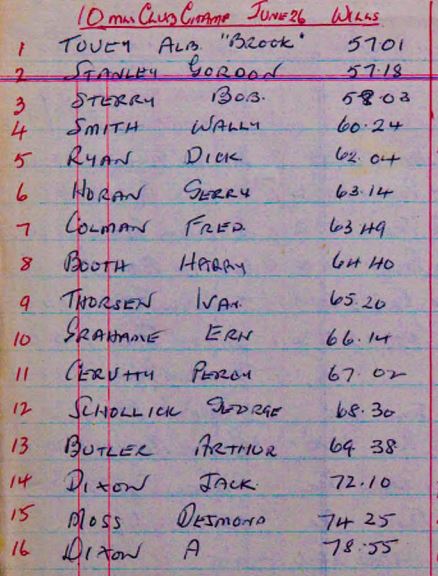 10 MILE CLUB CHAMP JUNE 26 WILLS
1 TOVEY ALB. "BROCK" 57 01
2 STANLEY GORDON 57.18
3 STERRY BOB. 58.03
4 SMITH WALLY 60.24
5 RYAN DICK 62.04
6 HORAN GERRY 63.14
7 COLMAN FRED. 63 49
8 BOOTH HARRY 64 40
9 THORSEN IVAN. 65.20
10 GRAHAME ERN 66.14
11 CERUTTY PERCY 67.02
12 SCHOLLICK GEORGE 68.30
13 BUTLER ARTHUR 69 38
14 DIXON JACK. 72.10
15 MOSS DESMOND 74 25
16 DIXON A 78.55